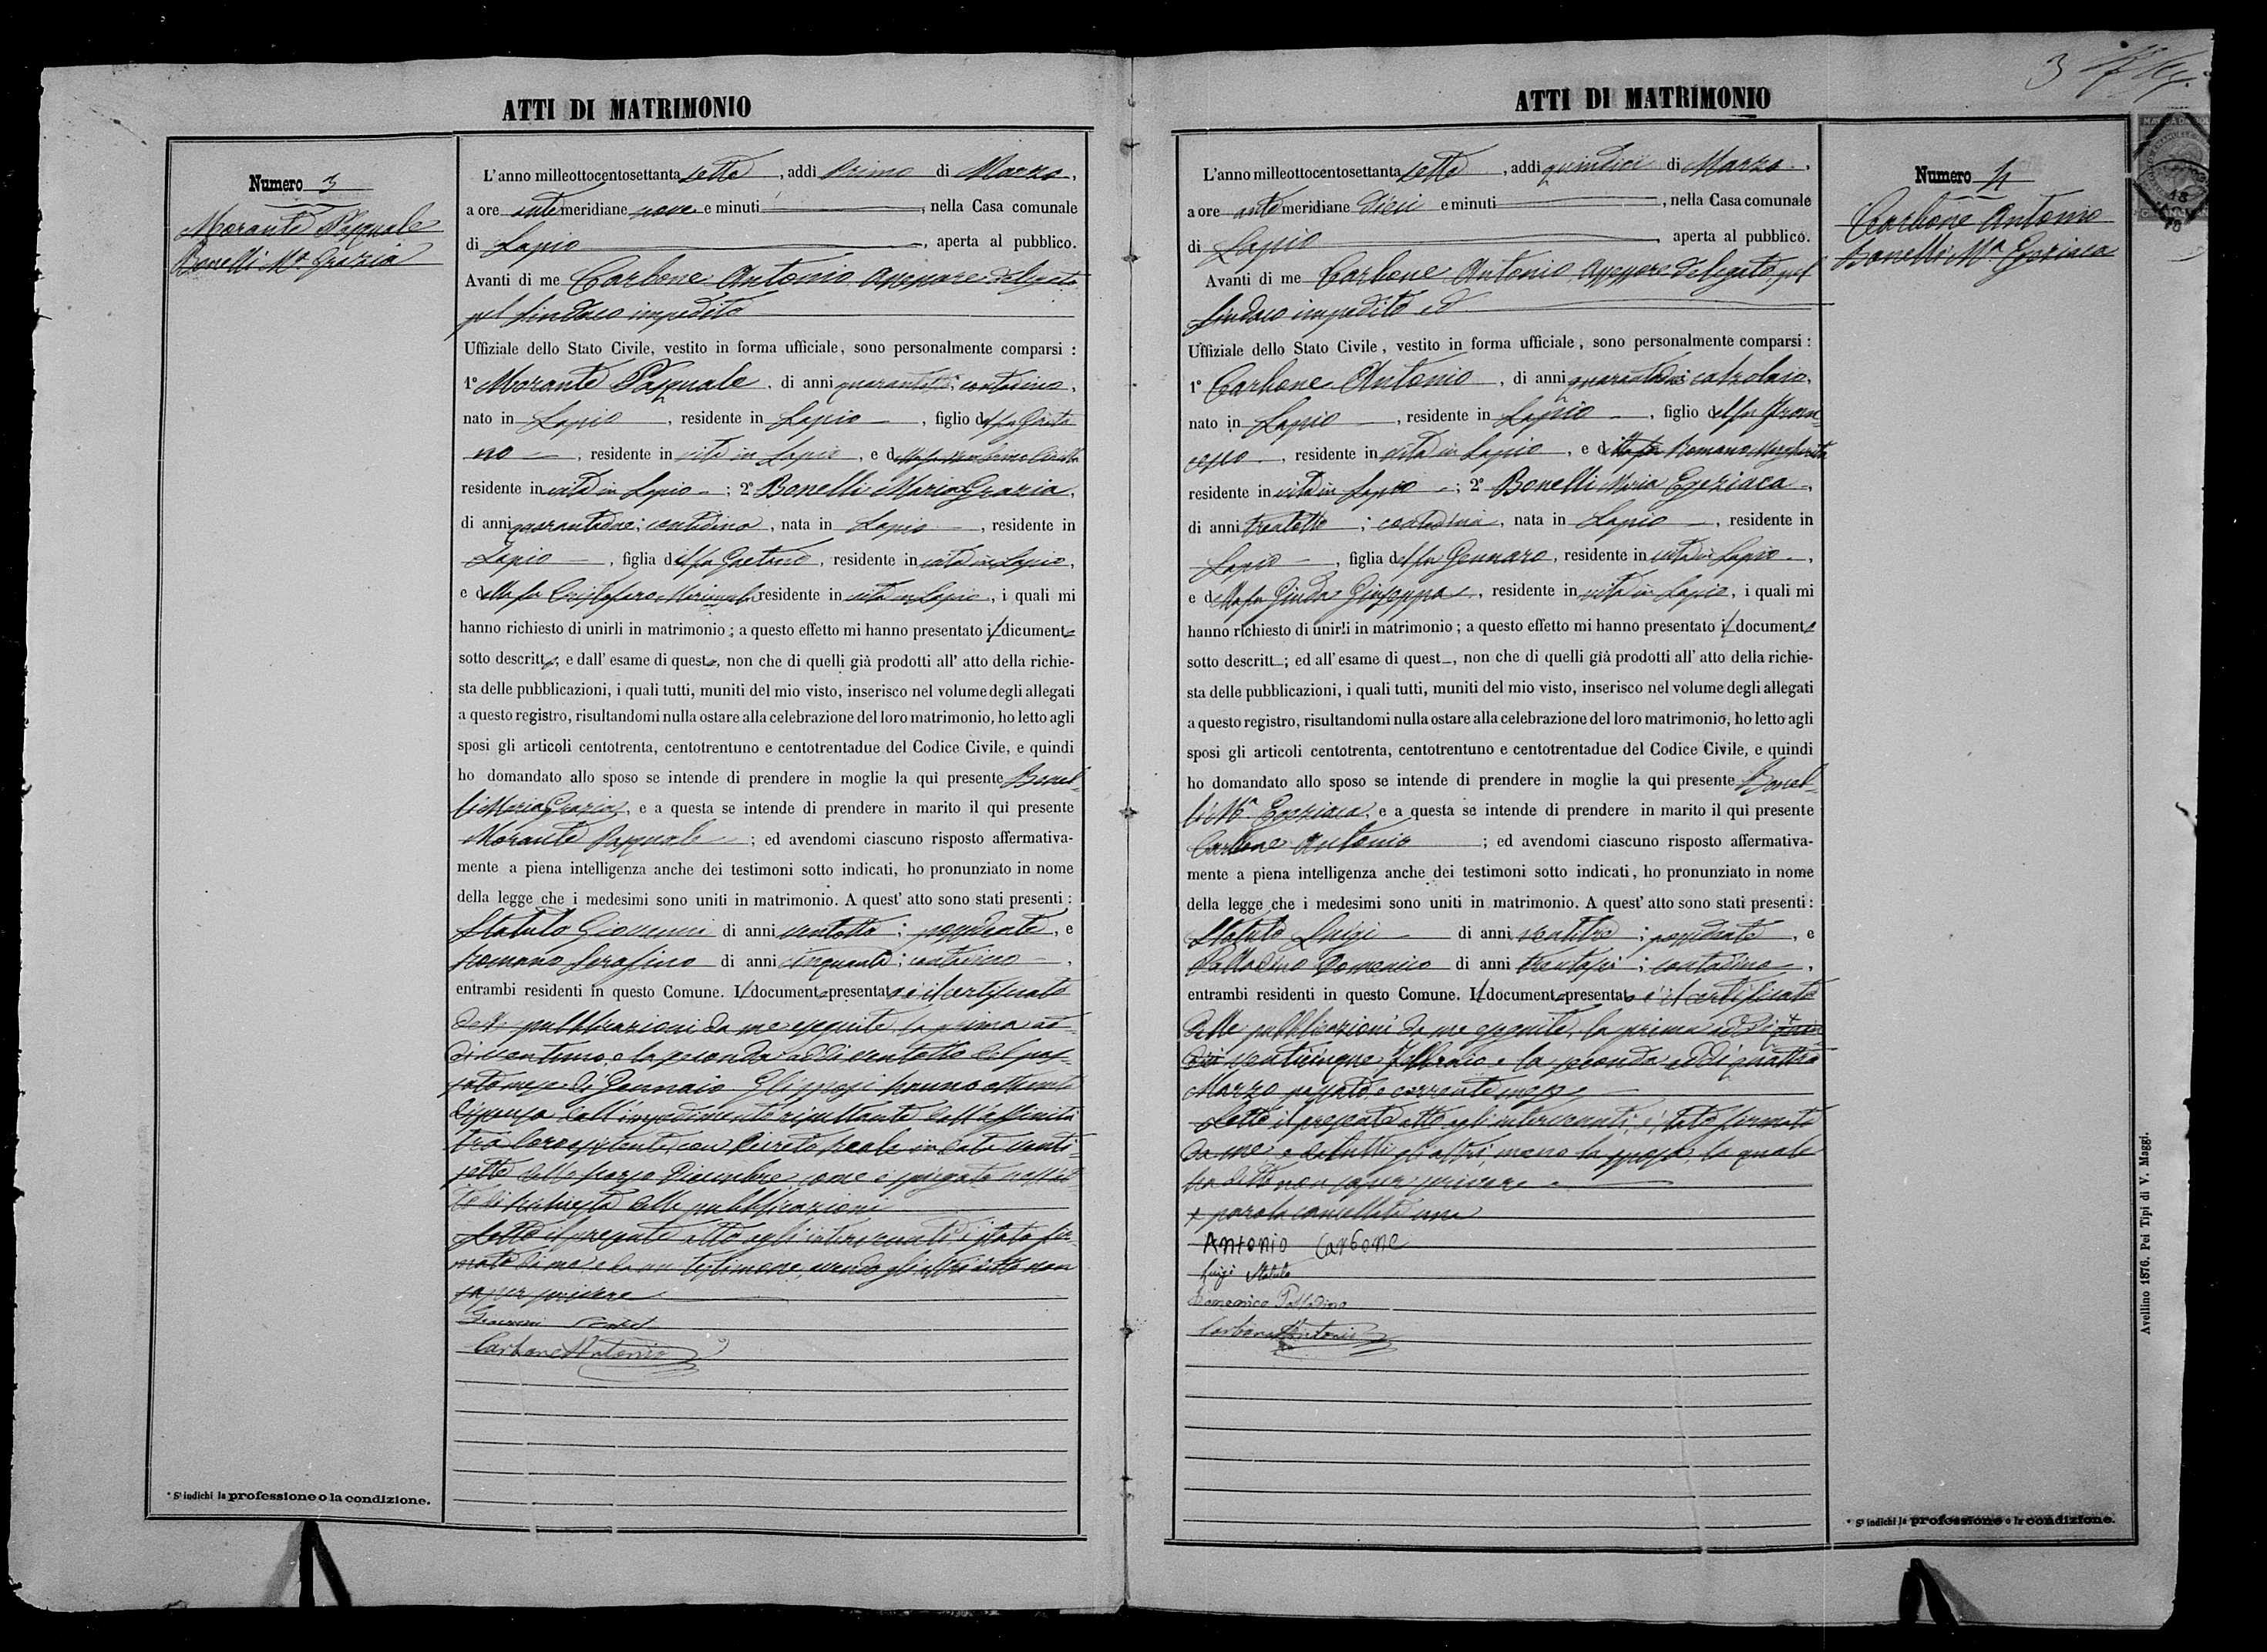 ATTI DI MATRIMONIO
Numero 3
Morante Pasquale
Bonelli Mª Grazia
L'anno milleottocentosettanta sette, addì Primo di Marzo,
a ore antemeridiane nove e minuti, nella Casa comunale
di Lapio, aperta al pubblico.
Avanti di me Carbone Antonio Assessore delegato
pel Sindaco impedito
Uffiziale dello Stato Civile, vestito in forma ufficiale, sono personalmente comparsi :
1º Morante Pasquale, di anni contadino,
nato in Lapio, residente in Lapio, figlio del fu
no, residente in vita in Lapio, e della fu
residente in vita in Lapio; 2º Bonelli Maria Grazia,
di anni quarantadue; contadina, nata in Lapio, residente in
Lapio, figlia del fu Gaetano, residente in vita in Lapio,
e della fu Cristofaro residente in vita in Lapio, i quali mi
hanno richiesto di unirli in matrimonio ; a questo effetto mi hanno presentato il dicumento
sotto descritto; e dall' esame di questo, non che di quelli già prodotti all' atto della richie-
sta delle pubblicazioni, i quali tutti, muniti del mio visto, inserisco nel volume degli allegati
a questo registro, risultandomi nulla ostare alla celebrazione del loro matrimonio, ho letto agli
sposi gli articoli centotrenta, centotrentuno e centotrentadue del Codice Civile, e quindi
ho domandato allo sposo se intende di prendere in moglie la qui presente Bonel-
li Maria Grazia, e a questa se intende di prendere in marito il qui presente
Morante Pasquale; ed avendomi ciascuno risposto affermativa-
mente a piena intelligenza anche dei testimoni sotto indicati, ho pronunziato in nome
della legge che i medesimi sono uniti in matrimonio. A quest' atto sono stati presenti :
Statuto Giovanni di anni ventotto; possidente, e
Romano Serafino di anni cinquanta; contadino,
entrambi residenti in questo Comune. Il documento presentato è il certificato
delle pubblicazioni da me eseguite, la prima ad-
dì ventuno, e la seconda addì ventotto del pas-
sato mese di Gennaio. Gli sposi hanno ottenuto
dispensa dall'impedimento risultante dall'affinità
tra loro esistente, con decreto Reale in data venti-
sette dello scorso Dicembre, come è spiegato nell'at-
to di richiesta delle pubblicazioni
Letto il presente atto agli intervenuti, è stato fir-
mato da me e da un testimone, avendo gli altri detto non
saper scrivere
Giovanni
Carbone Antonio
* Si indichi la professione o la condizione.
ATTI DI MATRIMONIO
3
Numero 4
Carbone Antonio
Bonelli Mª Egiziaca
L'anno milleottocentosettanta sette, addì quindici di Marzo,
a ore antemeridiane dieci e minuti, nella Casa comunale
di Lapio, aperta al pubblico.
Avanti di me Carbone Antonio, Assessore delegato, pel
Sindaco impedito ed
Uffiziale dello Stato Civile, vestito in forma ufficiale, sono personalmente comparsi :
1º Carbone Antonio, di anni calzolaio,
nato in Lapio, residente in Lapio, figlio del fu Fran-
cesco, residente in vita in Lapio, e della fu Romano Margherita
residente in vita in Lapio; 2º Bonelli Maria Egiziaca,
di anni trentotto; contadina, nata in Lapio, residente in
Lapio, figlia del fu Gennaro, residente in vita in Lapio,
e della fu Giuda Giuseppa, residente in vita in Lapio, i quali mi
hanno richiesto di unirli in matrimonio ; a questo effetto mi hanno presentato il documento
sotto descritt; ed all' esame di quest, non che di quelli già prodotti all' atto della richie-
sta delle pubblicazioni, i quali tutti, muniti del mio visto, inserisco nel volume degli allegati
a questo registro, risultandomi nulla ostare alla celebrazione del loro matrimonio, ho letto agli
sposi gli articoli centotrenta, centotrentuno e centotrentadue del Codice Civile, e quindi
ho domandato allo sposo se intende di prendere in moglie la qui presente Bonel-
li Mª Egiziaca, e a questa se intende di prendere in marito il qui presente
Carbone Antonio; ed avendomi ciascuno risposto affermativa-
mente a piena intelligenza anche dei testimoni sotto indicati, ho pronunziato in nome
della legge che i medesimi sono uniti in matrimonio. A quest' atto sono stati presenti :
Statuto Luigi di anni ventitre; possidente, e
Palladino Domenico di anni trentasei; contadino,
entrambi residenti in questo Comune. Il documento presentato è il certificato
delle pubblicazioni da me eseguite, la prima addì
venticinque Febbraio e la seconda addì quattro
Marzo passato, e corrente mese
Letto il presente atto agli intervenuti, è stato firmato
da me e da tutti gli altri, meno la sposa, la quale
ha detto non saper scrivere
x parola cancellata una
Antonio Carbone
Luigi Statuto
Domenico Palladino
Carbone Antonio
* Si indichi la professione o la condizione.
Avellino 1876. Pei Tipi di V. Maggi.